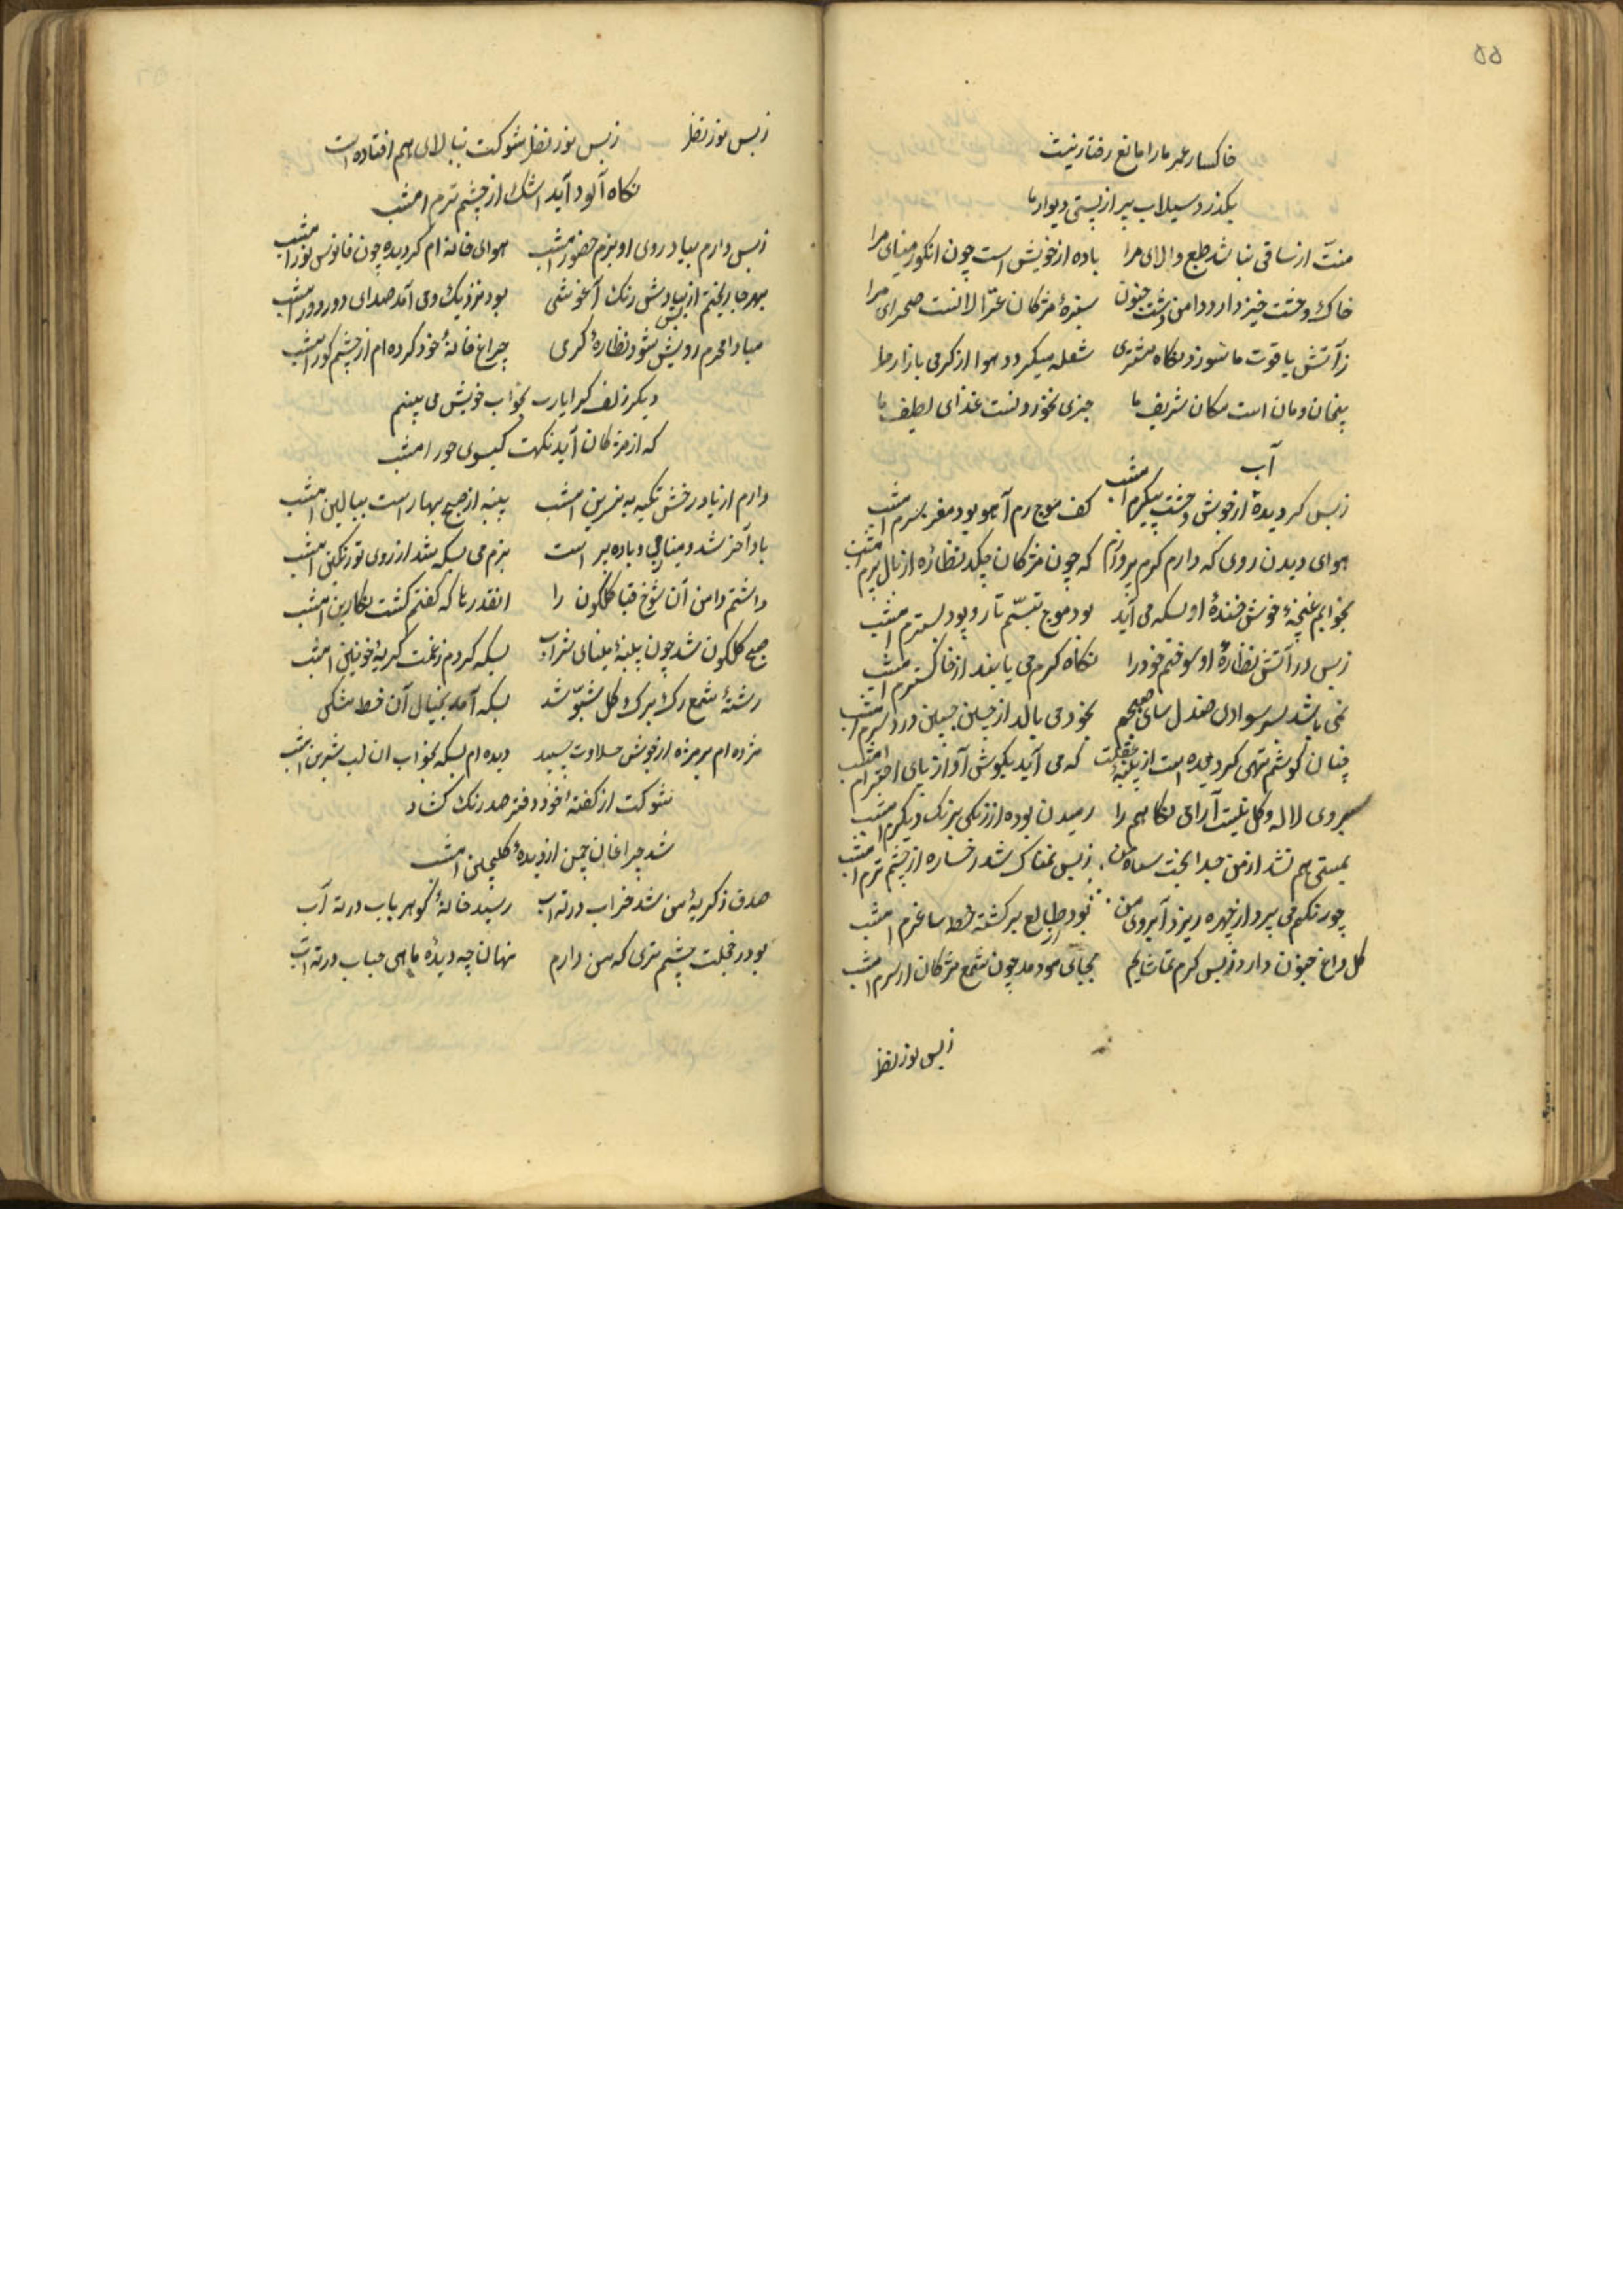 ۵۵
خاکسار عمر ما را مانع رفتار نیست
بکذرد سیلاب پیر از پستی دیوار ما
منت از ساقی نباشد طبع والای مرا باده از خویش است چون انکور مینای مرا
خاک وحشت خیز دارد دامن دشت جنون سبزهٔ مژکان غزالانست صحرای مرا
ز آتش یاقوت ما سوزد نکاه مشتری شعله میکردد هوا از کرمی بازار ما
بیخان و مان است مکان شریف ما چیزی نخوردنست غذای لطیف ما
آب
ز بس کردیدهٔ از خویش وحشت پیکرم امشب کف موج رم آهو بود مغز سرم امشب
هوای دیدن روی که دارم کرم پروازم که چون مژکان چکد نظاره از بال پرم امشب
بخوابم غنچهٔ خوش خندهٔ او بسکه می آید بود موج تبسم تار و پود بسترم امشب
ز بس در آتش نظارهٔ او سوختم خود را نکاه کرم می یابند از خاکسترم امشب
نمی باشد بسر سودای صندل سای صبحم بخود می بالد از چین جبین درد سرم امشب
چنان کوشم تهی کردیده است از پنبهٔ غفلت که می آید بکوش آواز پای اخترام امشب
بروی لاله و کل نیست آرای نکاهم را رمیدن بوده از رنکی برنک دیکرم امشب
بمستی هم نشد از من جدا بخت سیاه من ز بس نمناک شد رخساره از چشم ترم امشب
چو رنکم می پرد از چهره ریزد آبروی من بود طالع برکشته خط ساغرم امشب
کل داغ جنون دارد ز بس کرم تماشایم بجای مو دمد چون شمع مژکان از سرم امشب
ز بس نور نظر
ز بس نور نظر ز بس نور نظر شوکت ببالای هم افتاده است
نکاه آلود آید اشک از چشم ترم امشب
ز بس دارم بیاد روی او بزم حضور امشب هوای خانه ام کردیده چون فانوس نور امشب
بهر جا ریختم از بیاد رنک آغوشی بود نزدیک و می آمد صدای دور دور امشب
مبادا محرم رویش شود نظارهٔ کرمی چراغ خانهٔ خود کرده ام از چشم کور امشب
دیکر زلف کرا یارب بخواب خویش می بینم
که از مژکان آید نکهت کیسوی حور امشب
دارم از یاد رخش تکیه به نسرین امشب پنبه از صبح بهار است ببالین امشب
باد آخر شد و مینا می و باده پر است بزم می بسکه شد از روی تو رنکین امشب
داشتم دامن آن شوخ قبا کلکون را انقدرها که کفتم کشت نکارین امشب
صبح کلکون شد چون پنبهٔ مینای شراب بسکه کردم ز غمت کریهٔ خونین امشب
رشتهٔ شمع رک برک کل شبو شد بسکه آمد بخیال آن خط مشکی
مژده ام بر مژه از جوش حلاوت چسپید دیده ام بسکه بخواب ان لب شیرین امشب
شوکت از کفتهٔ خود دفتر صد رنک کشاد
شد چراغان چمن از دیدهٔ کلچین امشب
صدف ز کریهٔ من شد خراب در ته آب رسید خانهٔ کوهر بآب در ته آب
بود ز خجلت چشم تری که من دارم نهان چه دیدهٔ ماهی حباب در ته آب